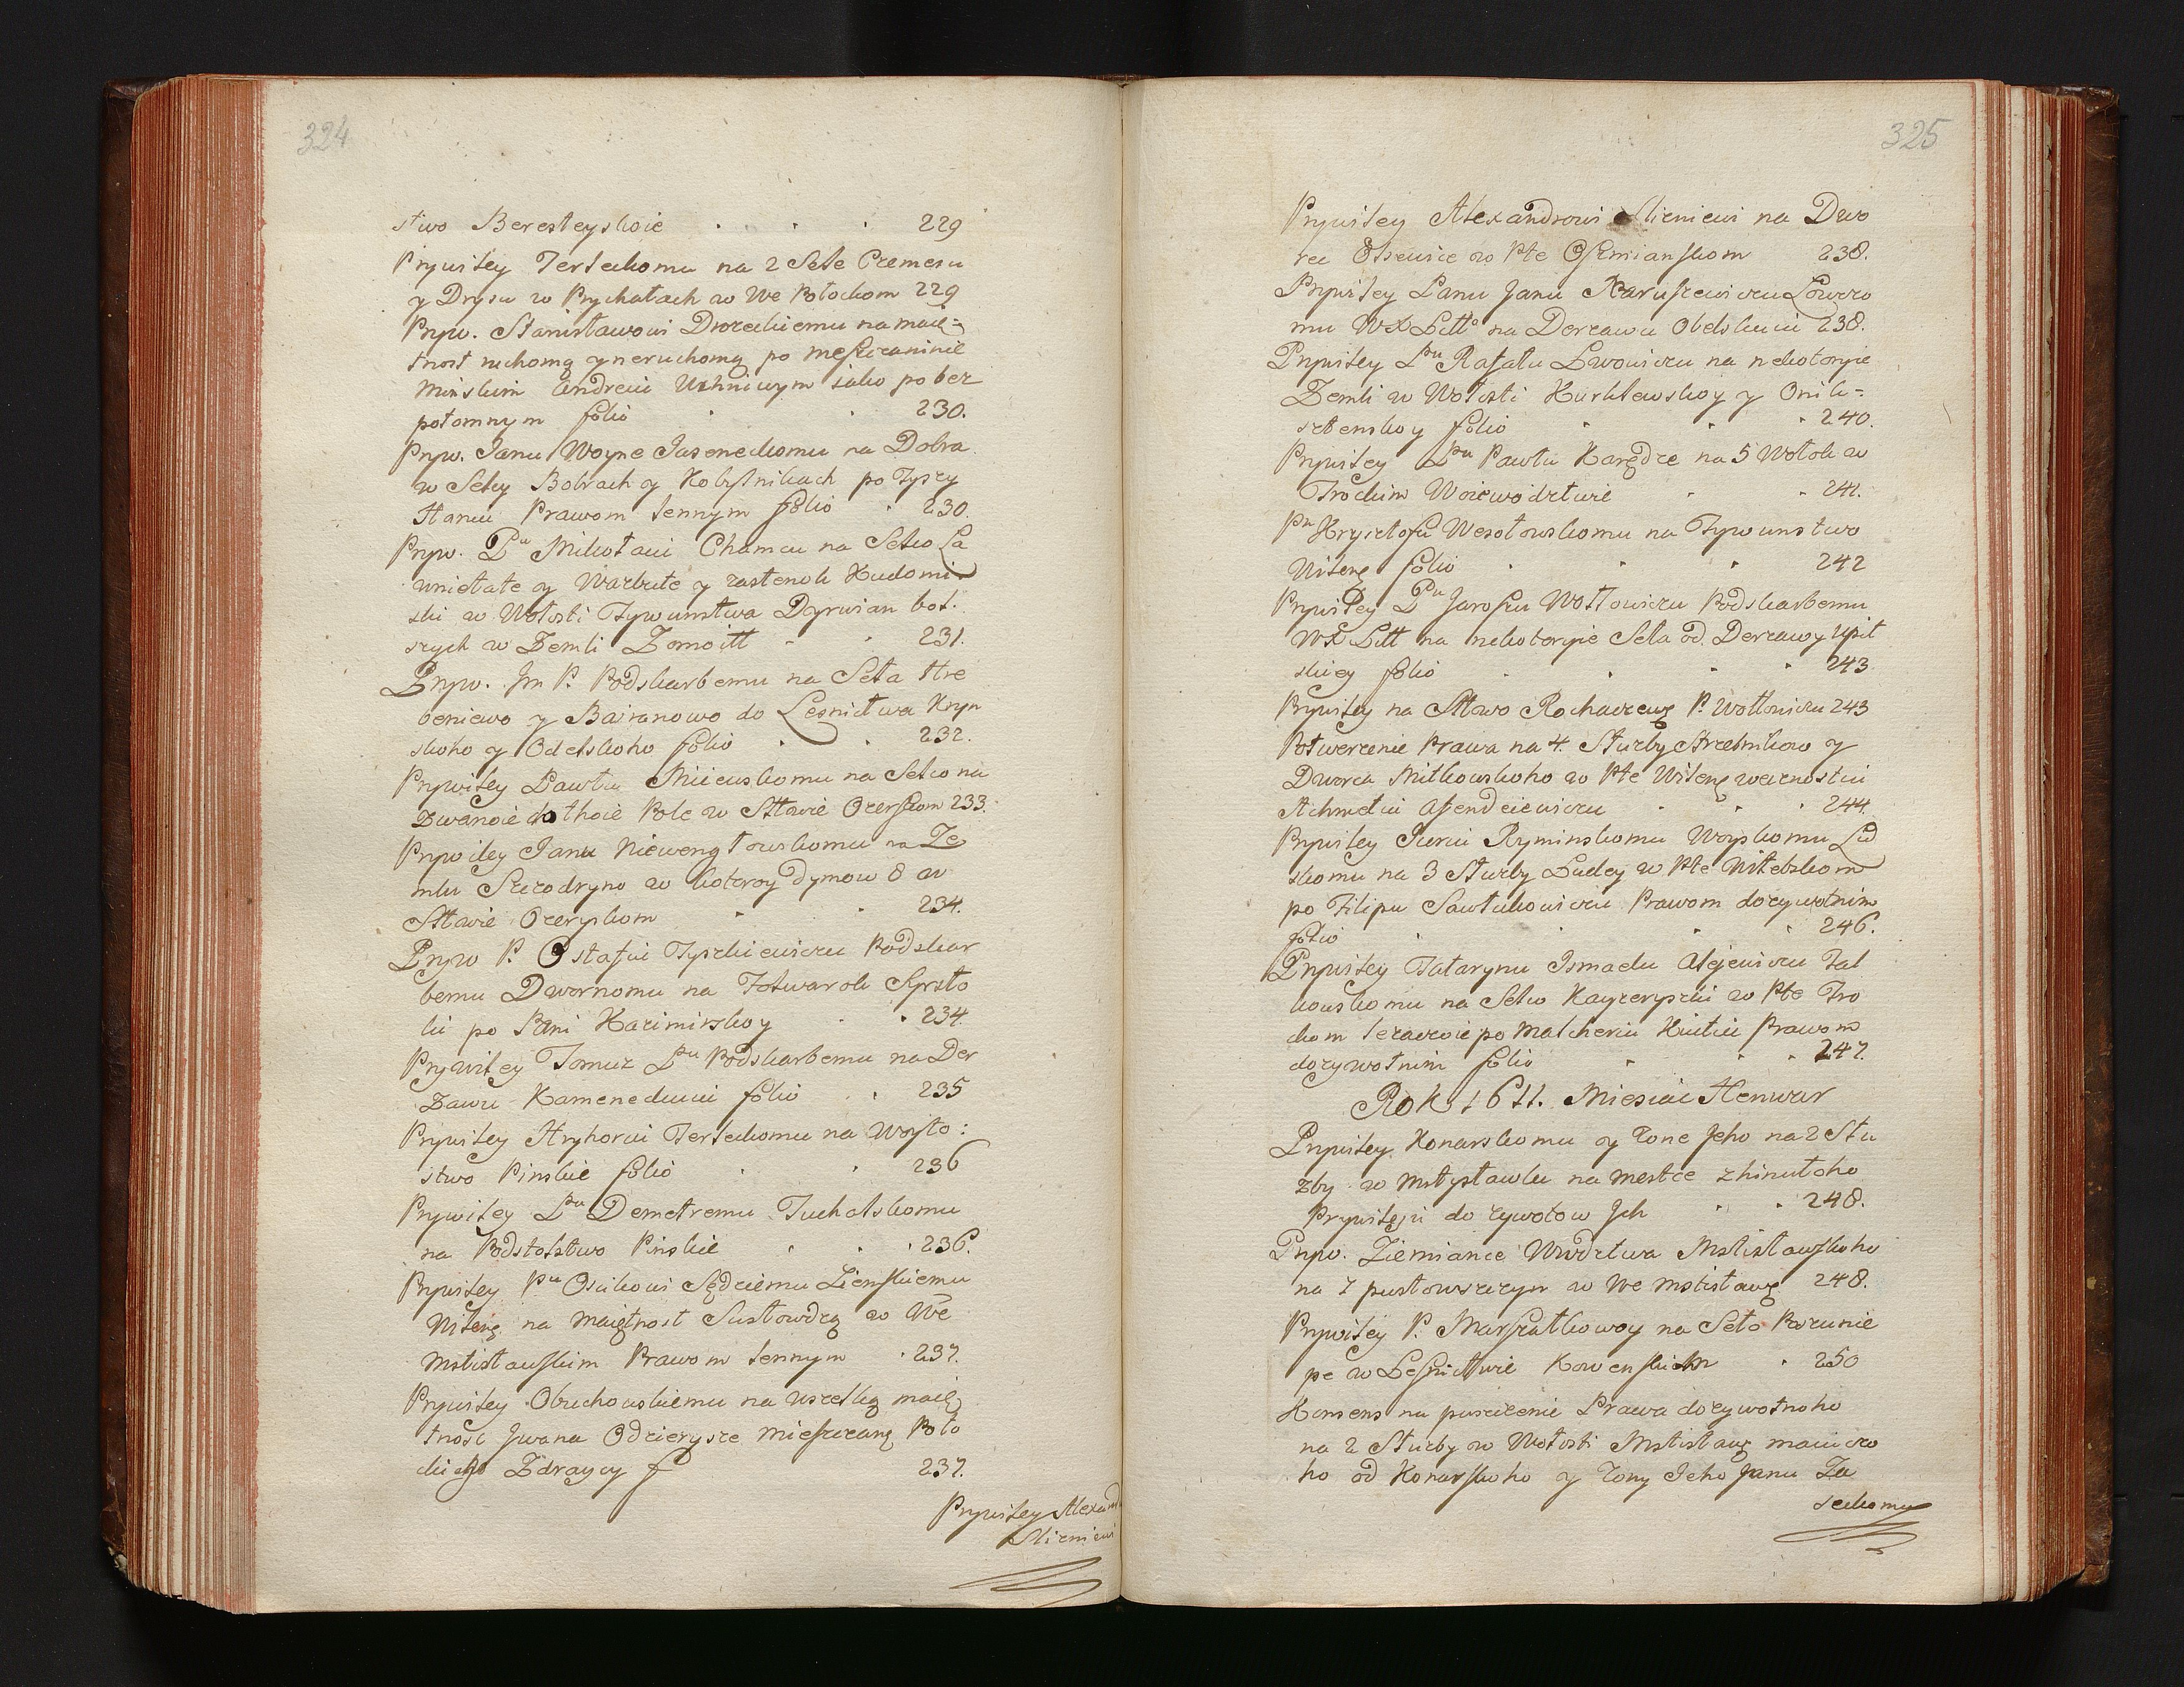 324
stwo Beresteyskoie 229
Prywiley Terleckomu na 2 Sele Czemesu
y Drysu w Prychałach w We Połockom 229
Pryw. Stanisławowi Dworeckiemu na maię=
tnost ruchomą y neruchomą po mesczaninie
Minskim Andreiu Uchniczym iako po bez
potomnym folio 230.
Pryw. Janu Woyne Jaseneckomu na Dobra
w Seley Bobrach y Kobylnikach po Tyszy
Haniu Prawom lennym folio 230.
Pryw. Pu Mikołaiu Chamcu na Sełco La
wnielate y Warbute y zastenok Kudomi
ski w Wołosti Tywunstwa Dyrwian bol.
szych w Zemli Zomoitt 231.
Pryw. Jm P. Podskarbemu na Seła Hre
beniewo y Bairanowo do Lesnictwa Kryn
skoho y Odelskoho folio 232.
Prywiley Pawłu Miiewskomu na Sełco na
Zwanoie dołhoie Pole w Sttawie Ozerskom 233.
Prywiley Janu Niewengłowskomu na Ze
mlu Szczodryno w kotoroy dymow 8 w
Sttawie Ozeryskom 234.
Pryw P. Ostafiu Tyszkiewiczu Podskar
bemu Dwornomu na Folwarok Syrsto
ki po Pani Kazimirskoy 234.
Prywiley Tomuz Pu Podskarbemu na Der
Zawu Kameneckuiu folio 235
Prywiley Hryhoriu Terleckomu na Woyto:
stwo Pinskie folio 236
Prywiley Pu Demetremu Tuchalskomu
na Podstolstwo Pinskie 236.
Prywiley Pu Osikowi Sędziemu Ziemskiemu
Witeng na maiętnost Sustowdzą w We
Mstisławskim Prawom lennym 237.
Prywiley Obuchowskiemu na wszelką maię
tnosc Jwana Odzierysze mieszczanę Poło
ckieho Zdraycy f 237.
Prywiley Alexand
Slizniewi
325
Prywiley Alexandrowi Slizniewi na Dwo
rec w Pte Oszmianskom 238.
Prywiley Panu Janu Naruszewiczu Łowczo
mu WX Litto na Derzawu Obelskuiu 238.
Prywiley Pu Rafału Lwowiczu na nekotoryie
Zemli w Wołosti Kurklewskoy y Onik=
sztenskoy folio 240.
Prywiley Pu Pawłu Karędze na 5 Wołok w
Trockim Woiewodztwie 241.
Pu Krysztofu Wesołowskomu na Tywunstwo
Wileng folio 242
Prywiley Pu Jaroszu Wołłowiczu Podskarbemu
WX Litt na nekotoryie Seła od Derzawy Upit
skiey folio 243
Prywiley na Sttwo Rochaczewg P. Wołłowiczu 243
Potwerzenie Prawa na 4. Służby Strzelnikow y
Dworca Mitkowskoho w Pte Wileng wecznostiu
Achmetiu Asendeiewiczu 244.
Prywiley Juriu Ryminskomu Woyskomu Lid
skomu na 3 Służby Ludey w Pte Witebskom
po Filipu Sawlukowiczu Prawom dozywotnim
folio 246.
Prywiley Tatarynu Jsmaelu Alejewiczu Tal
kowskomu na Sełco Kayzeryszki w Pte Tro
ckom lezaczoie po Malcheriu Kiutiu Prawom
dozywotnim folio 247.
Rok 1611. Miesiac Henwar
Prywiley Konarskomu y Zone Jeho na 2 Słu
zby w Mstysławlu na mestce zhinułoho
Prywileju do zywotow Jch 248.
Pryw. Ziemiance Wwdztwa Mstisławskoho
na 7 pustowszczyn w We Mstisławg 248.
Prywiley P. Marszałkowoy na Seło Poszunie
pe w Lesnictwie Kowenskim 250
Konsens na puszczenie Prawa dozywotnoho
na 2 Służby w Wołosti Mstisławg maiuczo
ho od Konarskoho y Zony Jeho Janu Za
leckomu